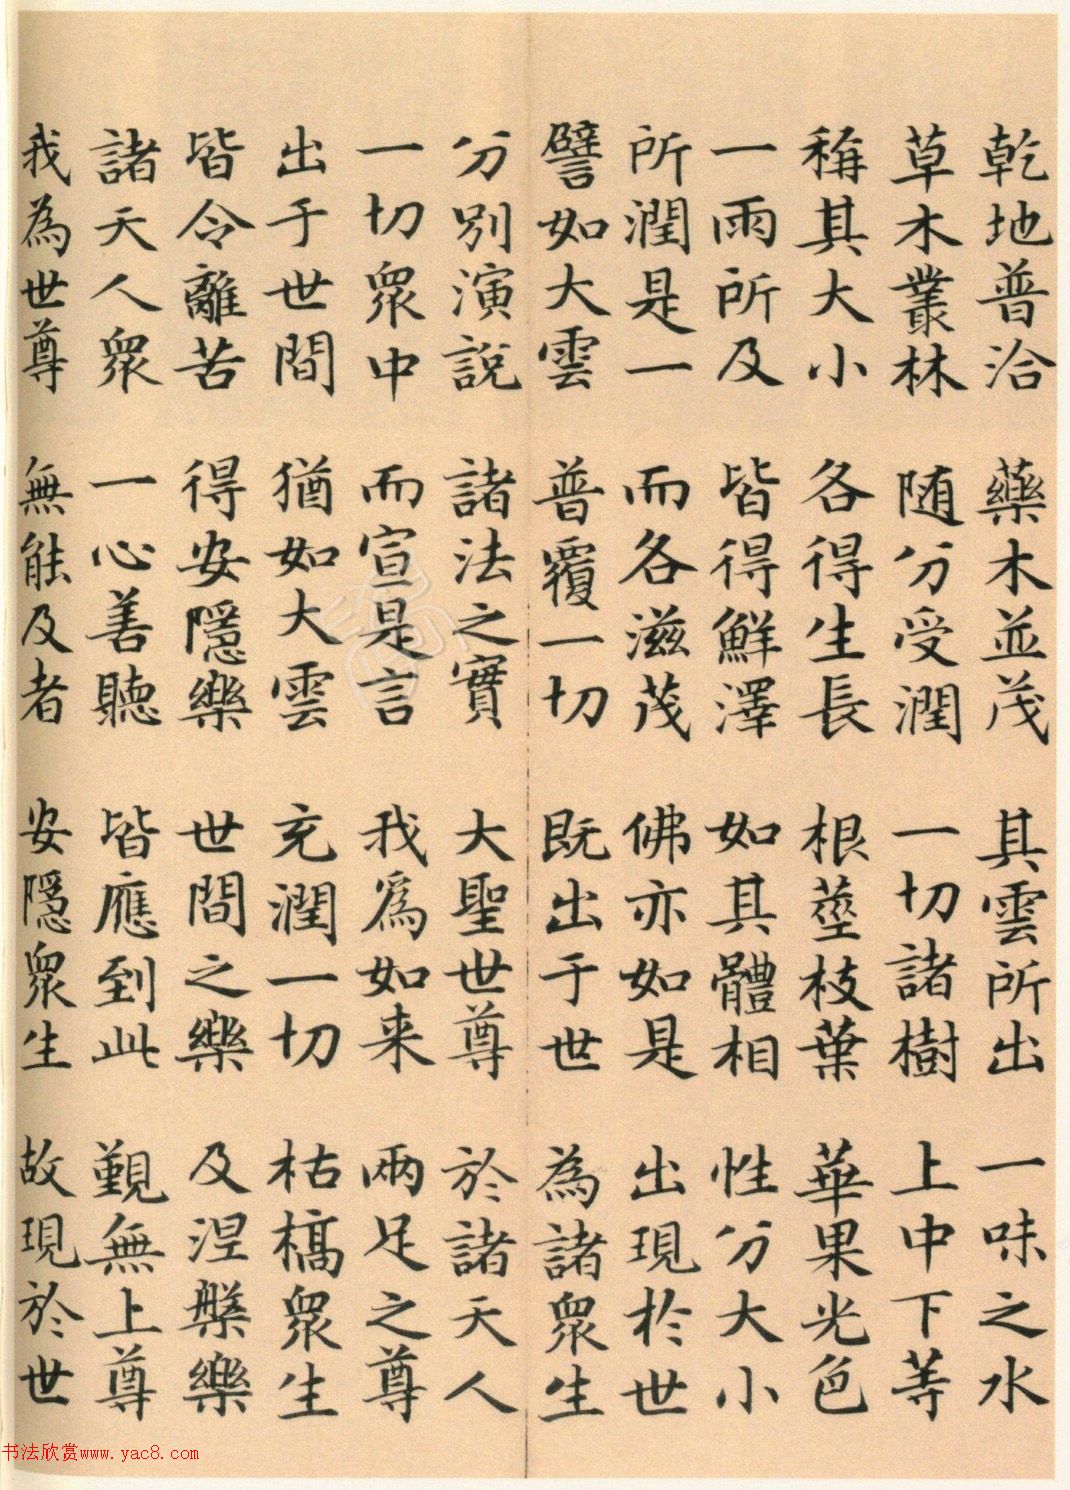 乾地普洽 藥木並茂 其雲所出 一味之水
草木叢林 随分受潤 一切諸樹 上中下等
稱其大小 各得生長 根莖枝葉 華果光色
一雨所及 皆得鮮澤 如其體相 性分大小
所潤是一 而各滋茂 佛亦如是 出現於世
譬如大雲 普覆一切 既出于世 為諸衆生
分別演說 諸法之實 大聖世尊 於諸天人
一切衆中 而宣是言 我為如来 兩足之尊
出于世間 猶如大雲 充潤一切 枯槁衆生
皆令離苦 得安隱樂 世間之樂 及涅槃樂
諸天人衆 一心善聽 皆應到此 覲無上尊
我為世尊 無能及者 安隱衆生 故現於世
书法欣赏www.yac8.com